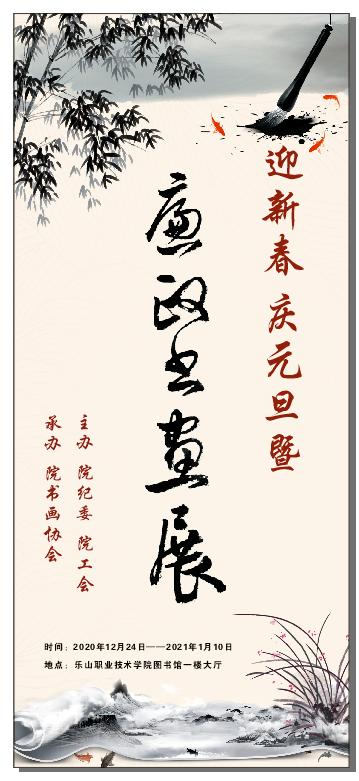 迎新春 庆元旦暨
廉政书画展
主办 院纪委 院工会
承办 院书画协会
时间：2020年12月24日——2021年1月10日
地点：乐山职业技术学院图书馆一楼大厅